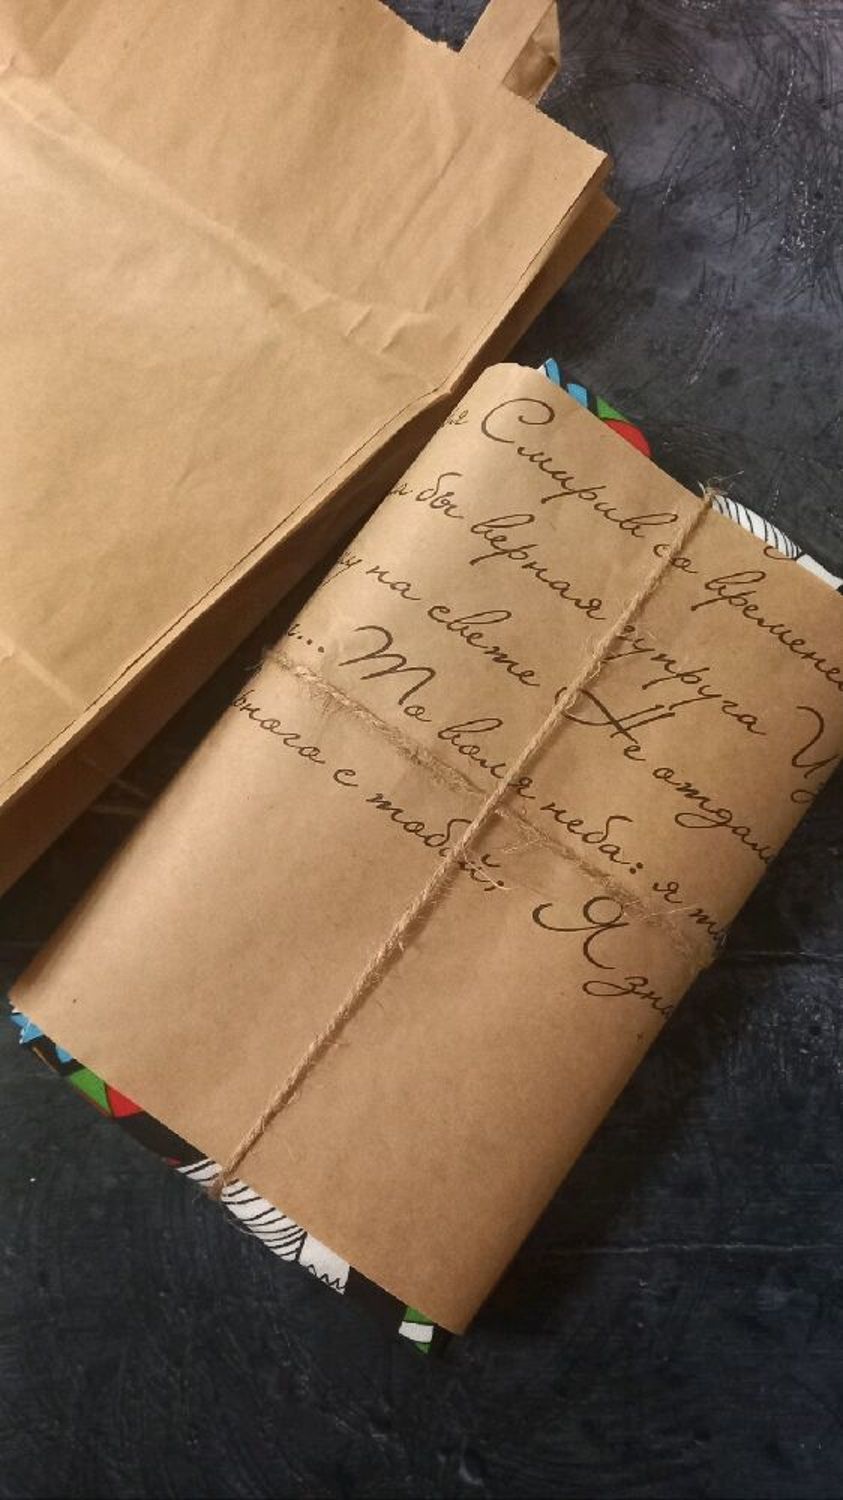 Смирив со времене
бы верная супруга
на свете Не отдам
... То воля неба: я
ьного с тобой; Я зна